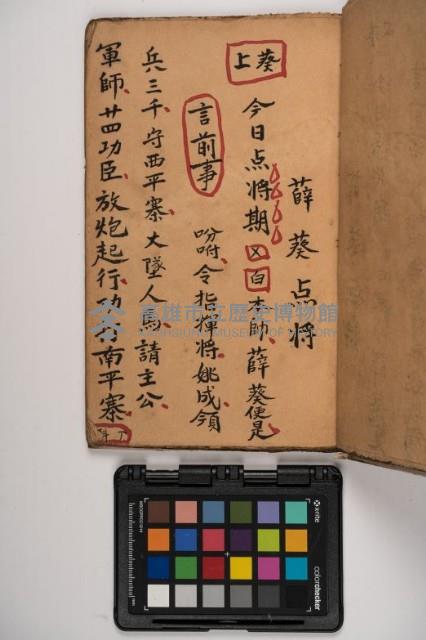 薛葵点將
葵上
今日点將期 又白 本師薛葵便是
言前事
吩咐令指揮將姚成領
兵三千守西平寨大墜人馬請主公
軍師廿四功臣放炮起行功夺南平寨
下
高雄市立歷史博物館
KAOHSIUNG MUSEUM OF HISTORY
x-rite
colorchecker